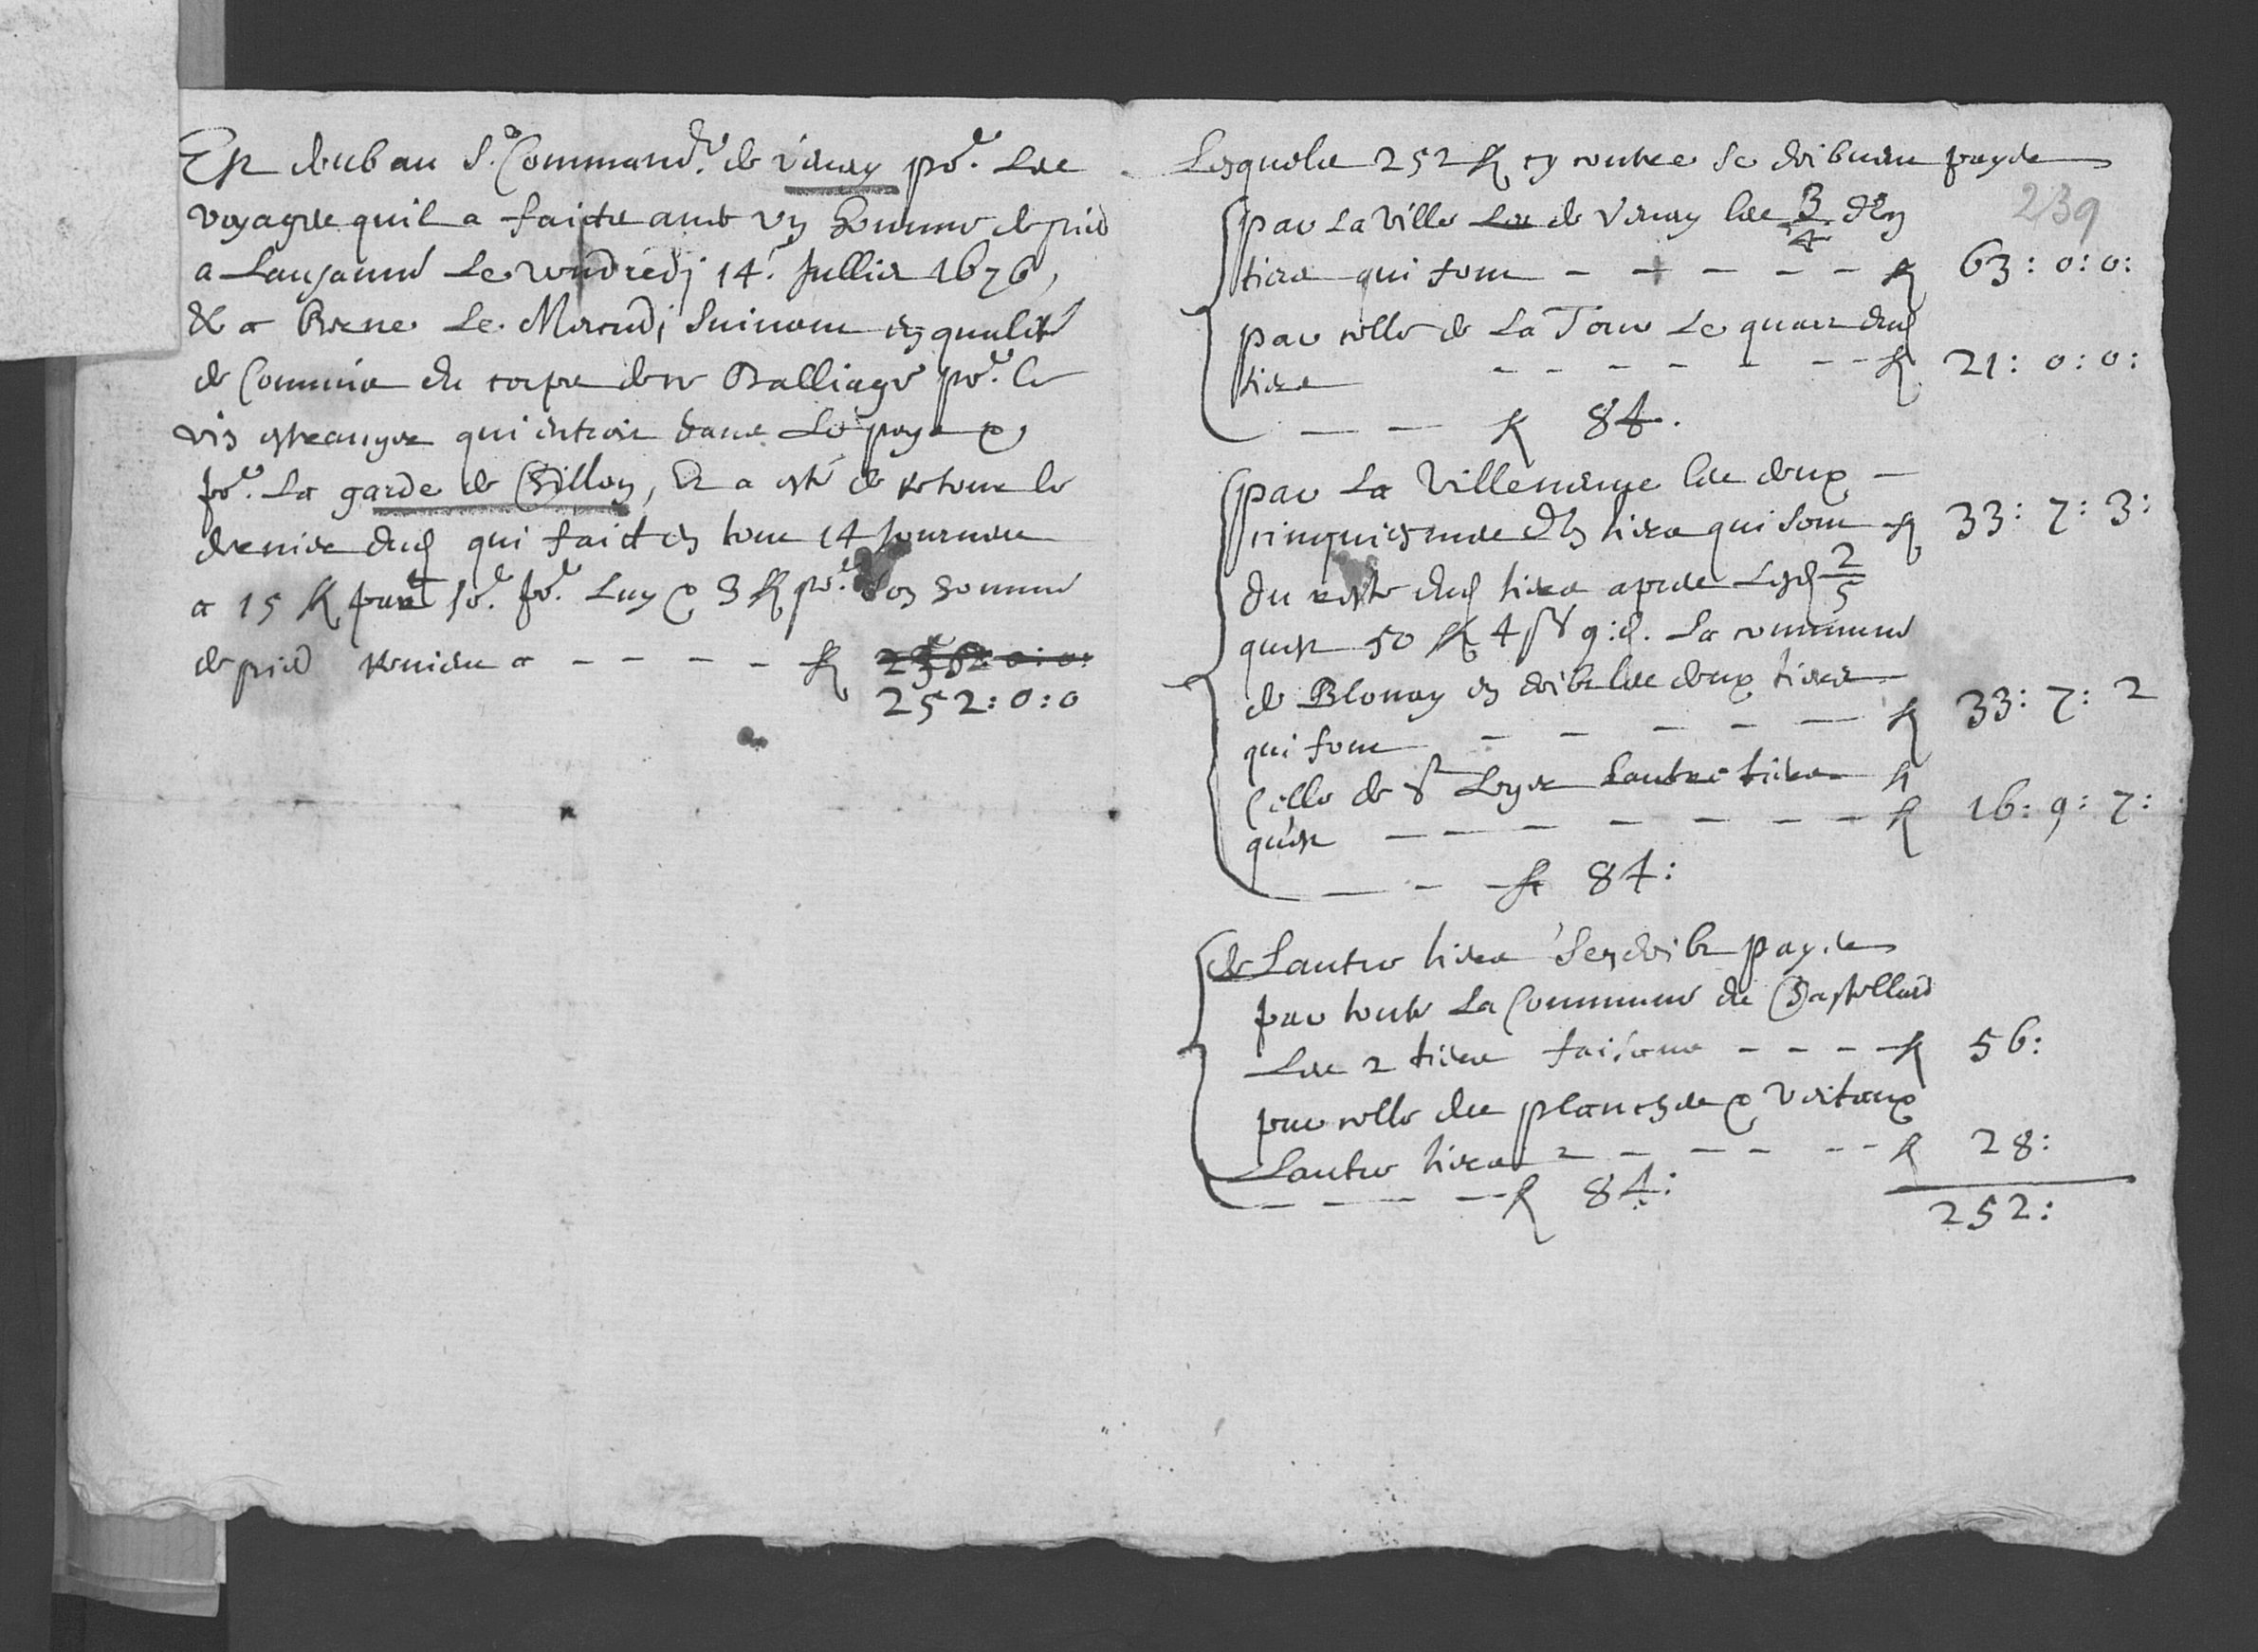 Est deub au Sr. Commandr. de Vevey pr. les
voyages quil a faicts avec un homme de pied
a Lausanne Le vendredj 14e. Jullier 1676,
& a Berne Le Mercredj suivant en qualité
de Commis du corps de ce Balliage pr. le
vin estranger qui entroit dans Le pays &
pr. La garde de Chillon, Et a esté de retour le
dernier dud qui faict en tout 14 journees
a 15 ff par jor. pr. Luy & 3 ff pr. son homme
de pied revient a - - - - - ff
252:0:0
Lesquels 252 ff cy contre se doibvent payer
239
par La Ville de Vevey les 3/4 d'un
tiers qui sont - - - - - ff 63:0:0:
par celle de La Tour Le quart dud
tiers - - - - - - - ff 21:0:0:
— — ff 84.
par La Ville les deux
cinquiesmes d'un tiers qui sont ff 33:7:3:
Du reste dud tiers apres Lesd 2/5
quest 50 ff 4 s 9 d. La commune
de Blonay en doibt les deux tiers
qui sont - - - - - ff 33:7:2
Celle de St Legier Lautre tiers ff
quest - - - - - - - ff 16:9:7:
— - - ff 84:
de Lautre tiers s'en doibt payer
par toute La Commune du Chastellard
Les 2 tiers faisant - - - - ff 56:
par celle des planches & Veitaux
Lautre tiers - - - - - - ff 28:
- - - - ff 84:
252: